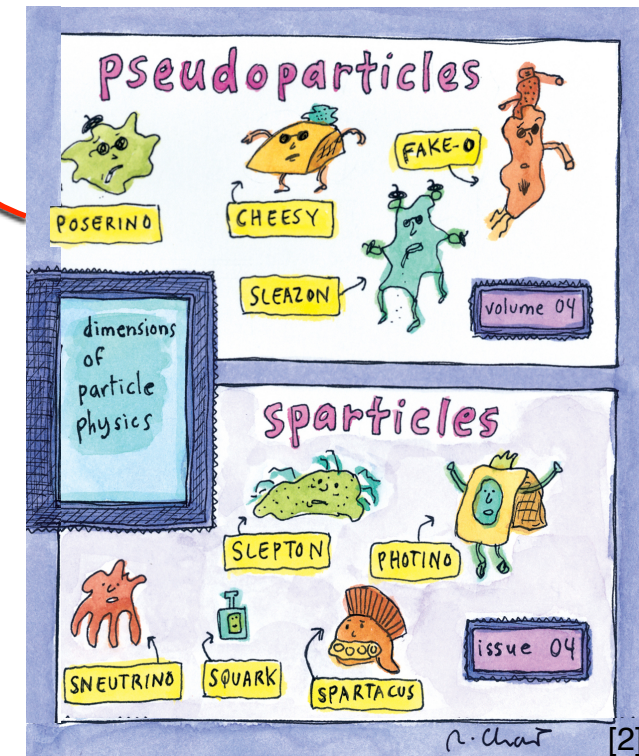 pseudoparticles
POSERINO
CHEESY
FAKE-O
SLEAZON
volume 04
dimensions
of
particle
physics
sparticles
SLEPTON
PHOTINO
SNEUTRINO
SQUARK
SPARTACUS
issue 04
[2]